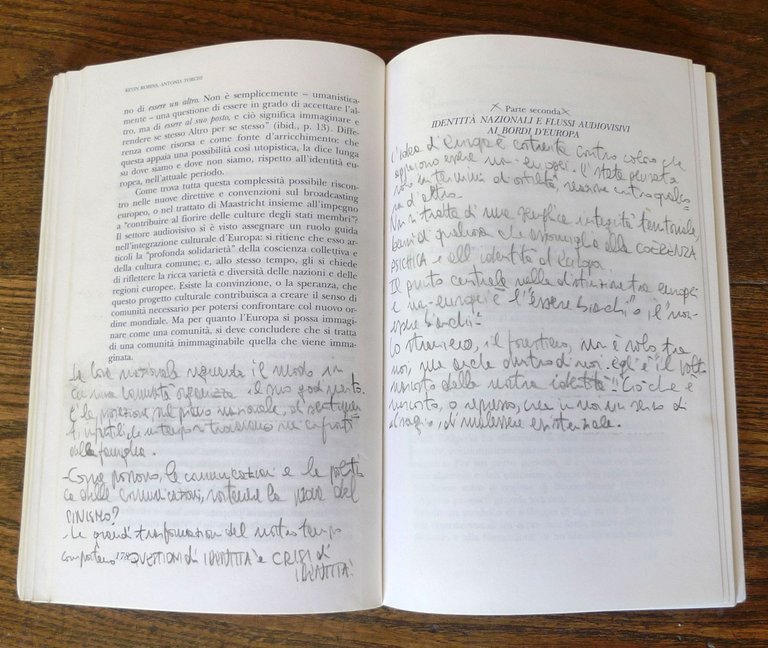 KEVIN ROBINS, ANTONIA TORCHI
no di essere un altro. Non è semplicemente – umanistica-
mente – una questione di essere in grado di accettare l'al-
tro, ma di essere al suo posto, e ciò significa immaginare e
rendere se stesso Altro per se stesso” (ibid., p. 13). Diffe-
renze come risorsa e come fonte d'arricchimento: che
questa appaia una possibilità così utopistica, la dice lunga
su dove siamo e dove non siamo, rispetto all'identità eu-
ropea, nell'attuale periodo.
Come trova tutta questa complessità possibile riscon-
tro nelle nuove direttive e convenzioni sul broadcasting
europeo, o nel trattato di Maastricht insieme all'impegno
a “contribuire al fiorire delle culture degli stati membri”?
Il settore audiovisivo si è visto assegnare un ruolo guida
nell'integrazione culturale d'Europa: si ritiene che esso ar-
ticoli la “profonda solidarietà” della coscienza collettiva e
della cultura comune; e, allo stesso tempo, gli si chiede
di riflettere la ricca varietà e diversità delle nazioni e delle
regioni europee. Esiste la convinzione, o la speranza, che
questo progetto culturale contribuisca a creare il senso di
comunità necessario per potersi confrontare col nuovo or-
dine mondiale. Ma per quanto l'Europa si possa immagi-
nare come una comunità, si deve concludere che si tratta
di una comunità inimmaginabile quella che viene imma-
ginata.
La cosa nazionale riguarda il modo in
cui una comunità organizza il suo godimento.
sul piano nazionale, di sentimen
ti
della famiglia.
- Come possono, le comunicazioni e le politi
che delle comunicazioni, sostenere la del
?
- Le grandi trasformazioni del nostro tempo
comportano QUESTIONI di IDENTITÀ e CRISI di
IDENTITÀ.
178
Parte seconda
IDENTITÀ NAZIONALI E FLUSSI AUDIOVISIVI
AI BORDI D'EUROPA
L'idea d'Europa è costruita contro coloro che
appaiono essere non-europei. È stata plasmata
solo in termini di ostilità, reazione contro qualco-
sa d'altro.
Non si tratta di una semplice integrità territoriale,
bensì di qualcosa che assomiglia alla COERENZA
PSICHICA e all'identità d'Europa.
Il punto centrale nella distinzione tra europei
e non-europei è l'“essere bianchi” o il “non-
essere bianchi”.
Lo straniero, il forestiero, non è solo tra
noi, ma anche dentro di noi. egli “è il volto
nascosto della nostra identità”. Ciò che è
nascosto, o represso, crea in noi un senso di
disagio, di malessere esistenziale.